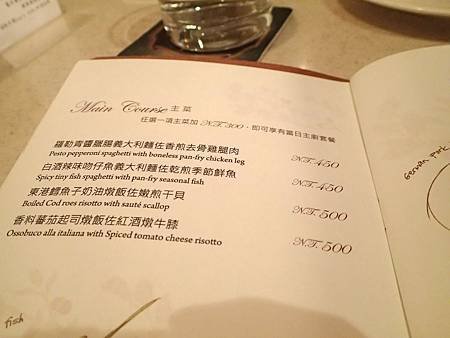 Main Course 主菜
任選一項主菜加 NT.300，即可享有當日主廚套餐
羅勒青醬臘腸義大利麵佐香煎去骨雞腿肉 NT.450
Pesto pepperoni spaghetti with boneless pan-fry chicken leg
白酒辣味吻仔魚義大利麵佐乾煎季節鮮魚 NT.450
Spicy tiny fish spaghetti with pan-fry seasonal fish
東港鱈魚子奶油燉飯佐嫩煎干貝 NT.500
Boiled Cod roes risotto with sauté scallop
香料蕃茄起司燉飯佐紅酒燉牛膝 NT.500
Ossobuco alla italiana with Spiced tomato cheese risotto
fish
German Pork